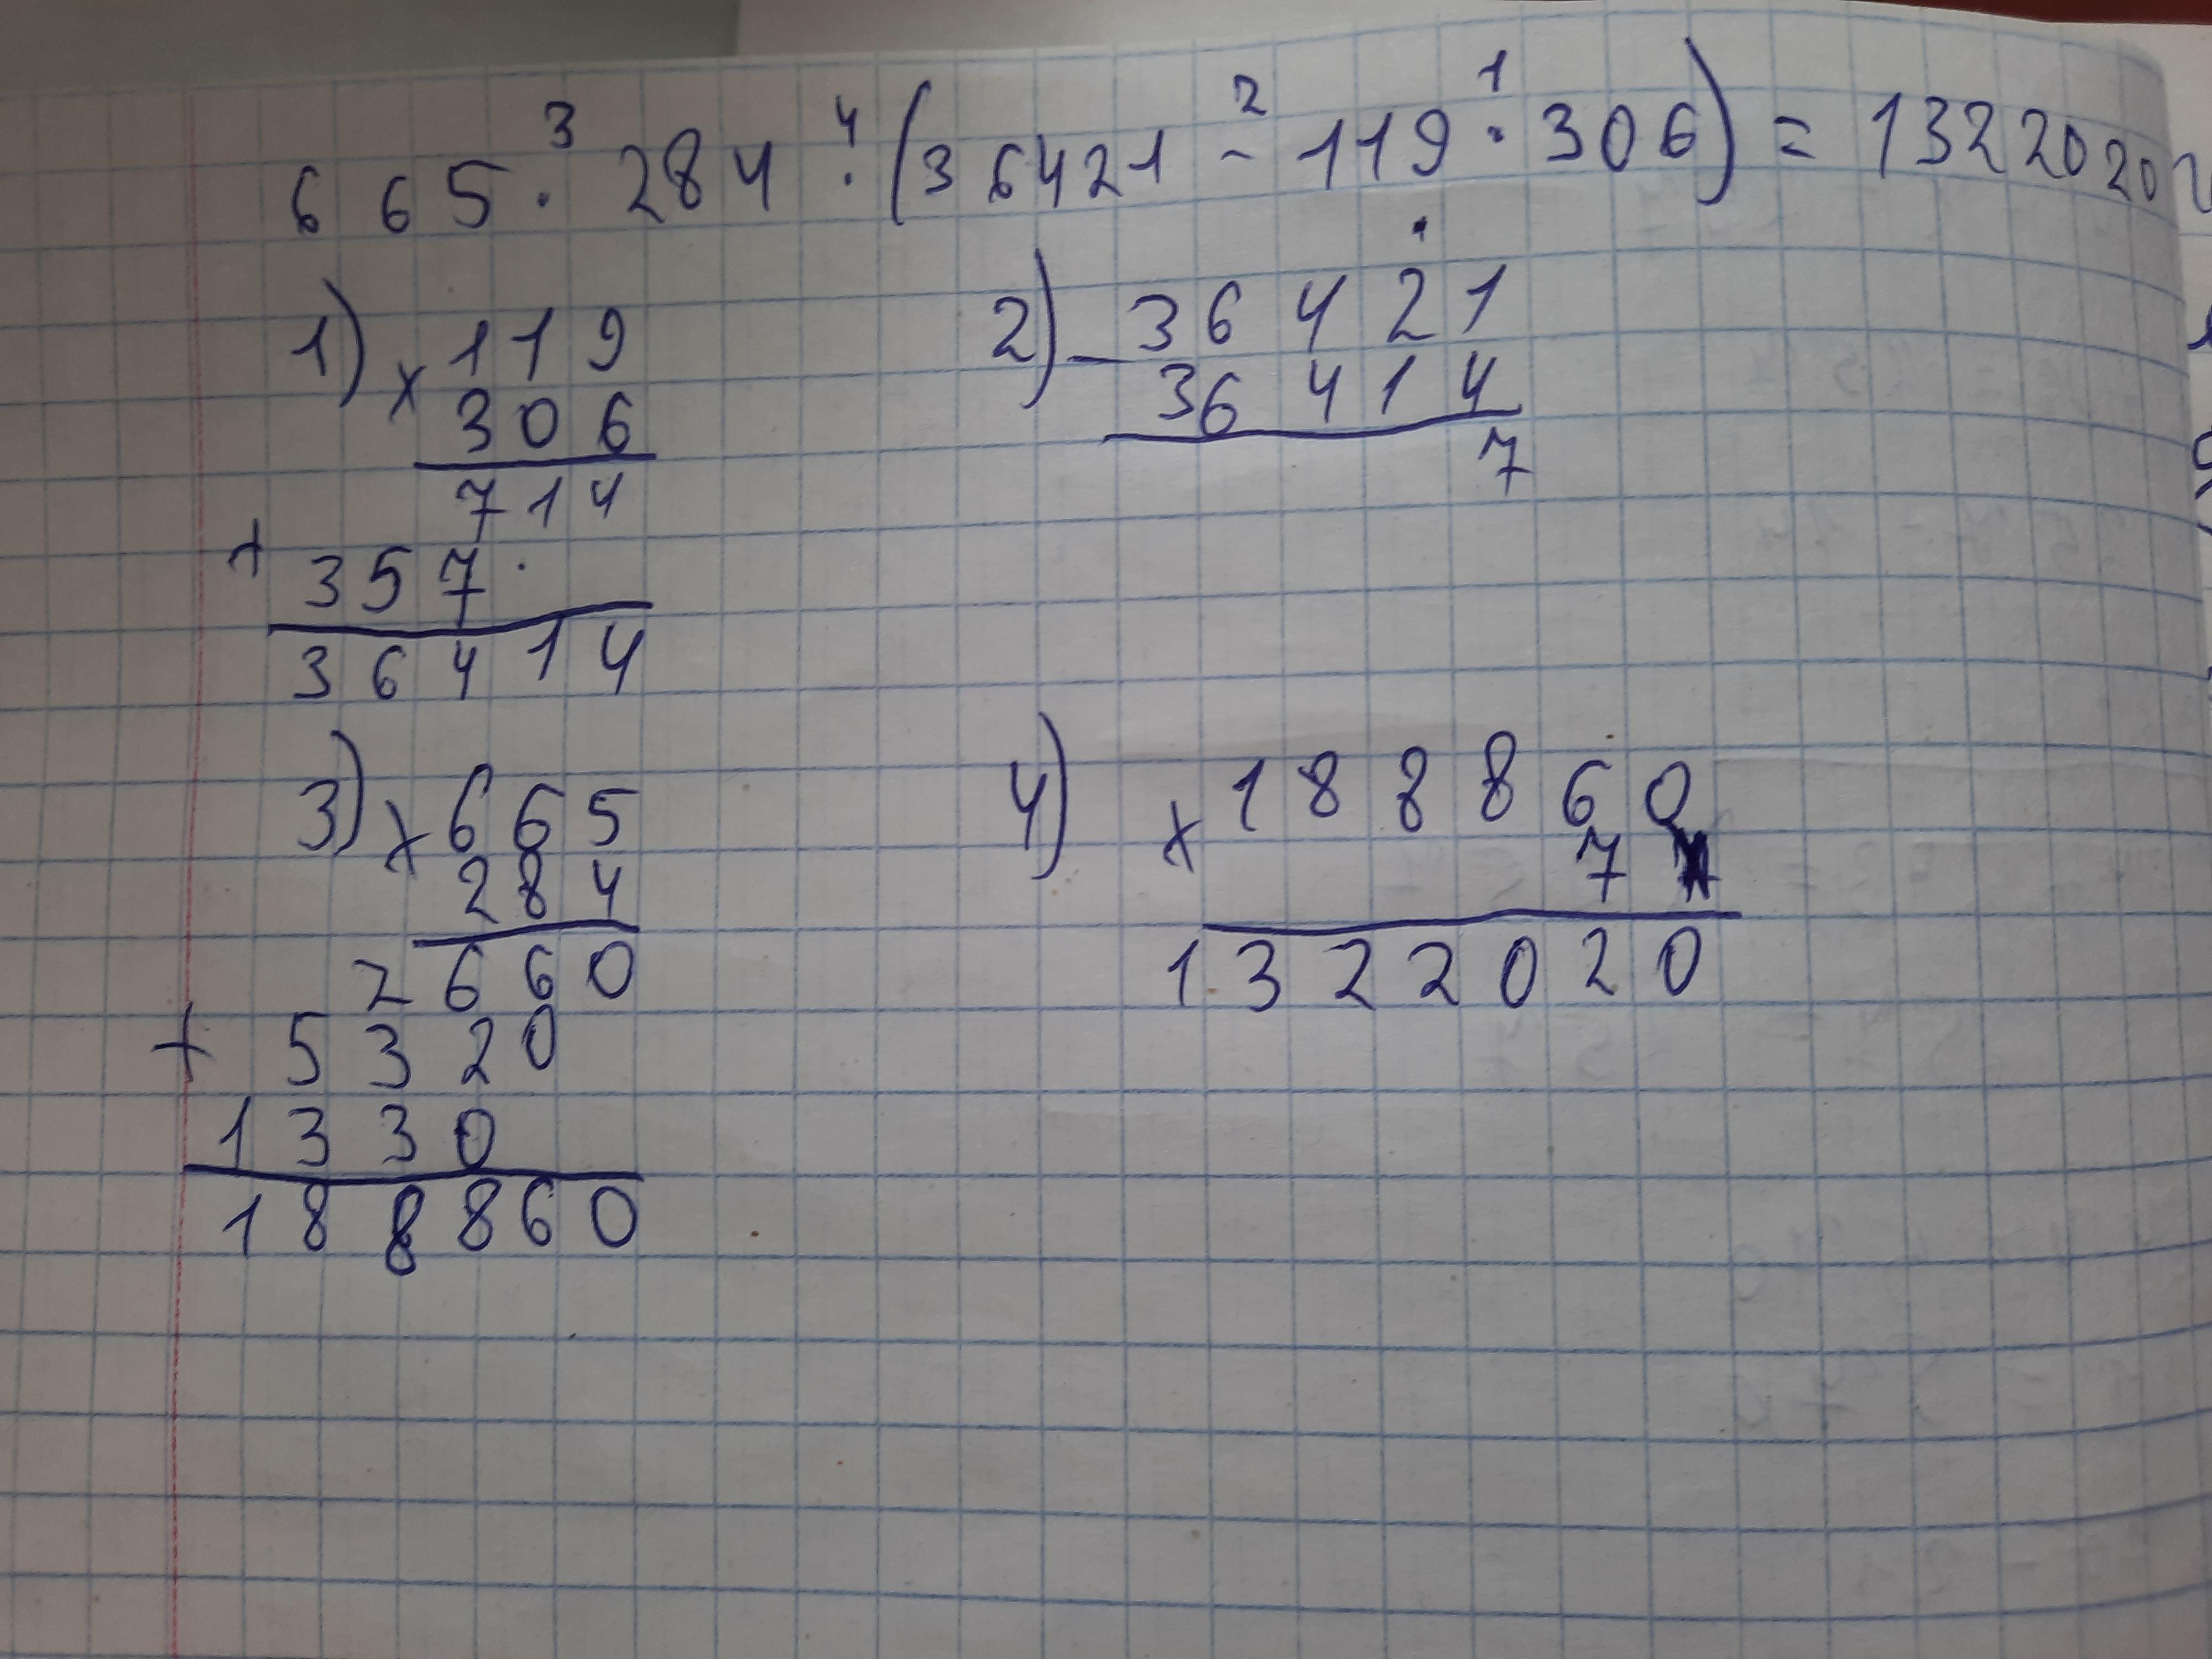 3 4 2 1
665 · 284 · (36421 - 119 · 306) = 1322020
1) × 119
306
714
+ 357 ·
36414
2) - 36421
36414
7
3) × 665
284
2660
+ 5320
1330
188860
4) × 188860
7
1322020